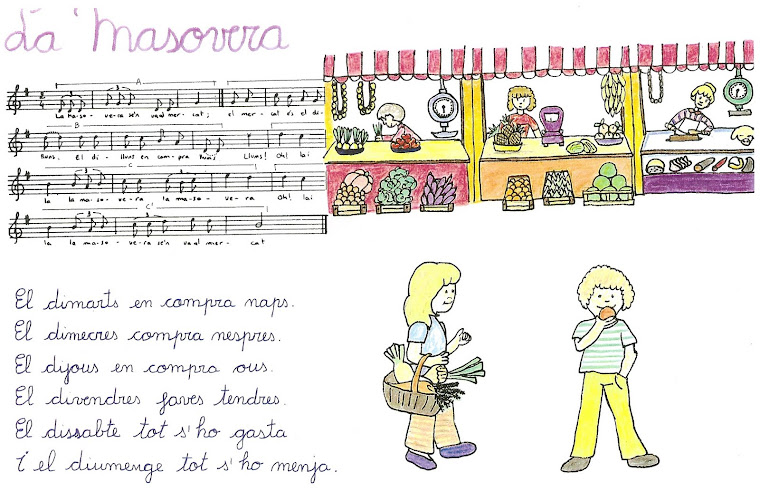 La Masovera
A
La ma-so- ve-ra se'n va al mer- cat; el mer- cat és el di-
B
lluns; El di- lluns en com-pra llum's Llums! Oh! lai
C
la la ma-so- ve-ra la ma-so- ve- ra Oh! lai
C'
la la ma-so- ve-ra se'n va al mer- cat
El dimarts en compra naps.
El dimecres compra nespres.
El dijous en compra ous.
El divendres faves tendres.
El dissabte tot s'ho gasta
i el diumenge tot s'ho menja.